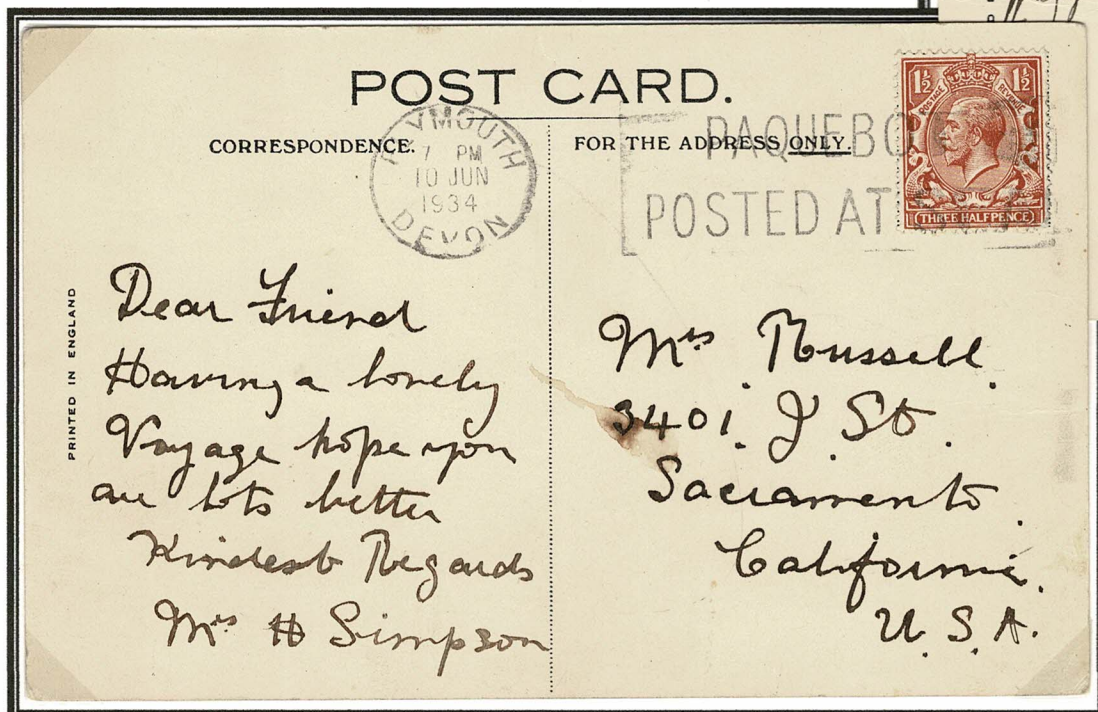 POST CARD.
CORRESPONDENCE.
FOR THE ADDRESS ONLY.
PLYMOUTH
7 PM
10 JUN
1934
DEVON
PAQUEBOT
POSTED AT
1½ 1½
POSTAGE REVENUE
THREE HALFPENCE
PRINTED IN ENGLAND
Dear Friend
Having a lovely
Voyage hope you
are lots better
Kindest Regards
Mrs H Simpson
Mrs Russell.
3401. J St.
Sacramento.
California.
U.S.A.